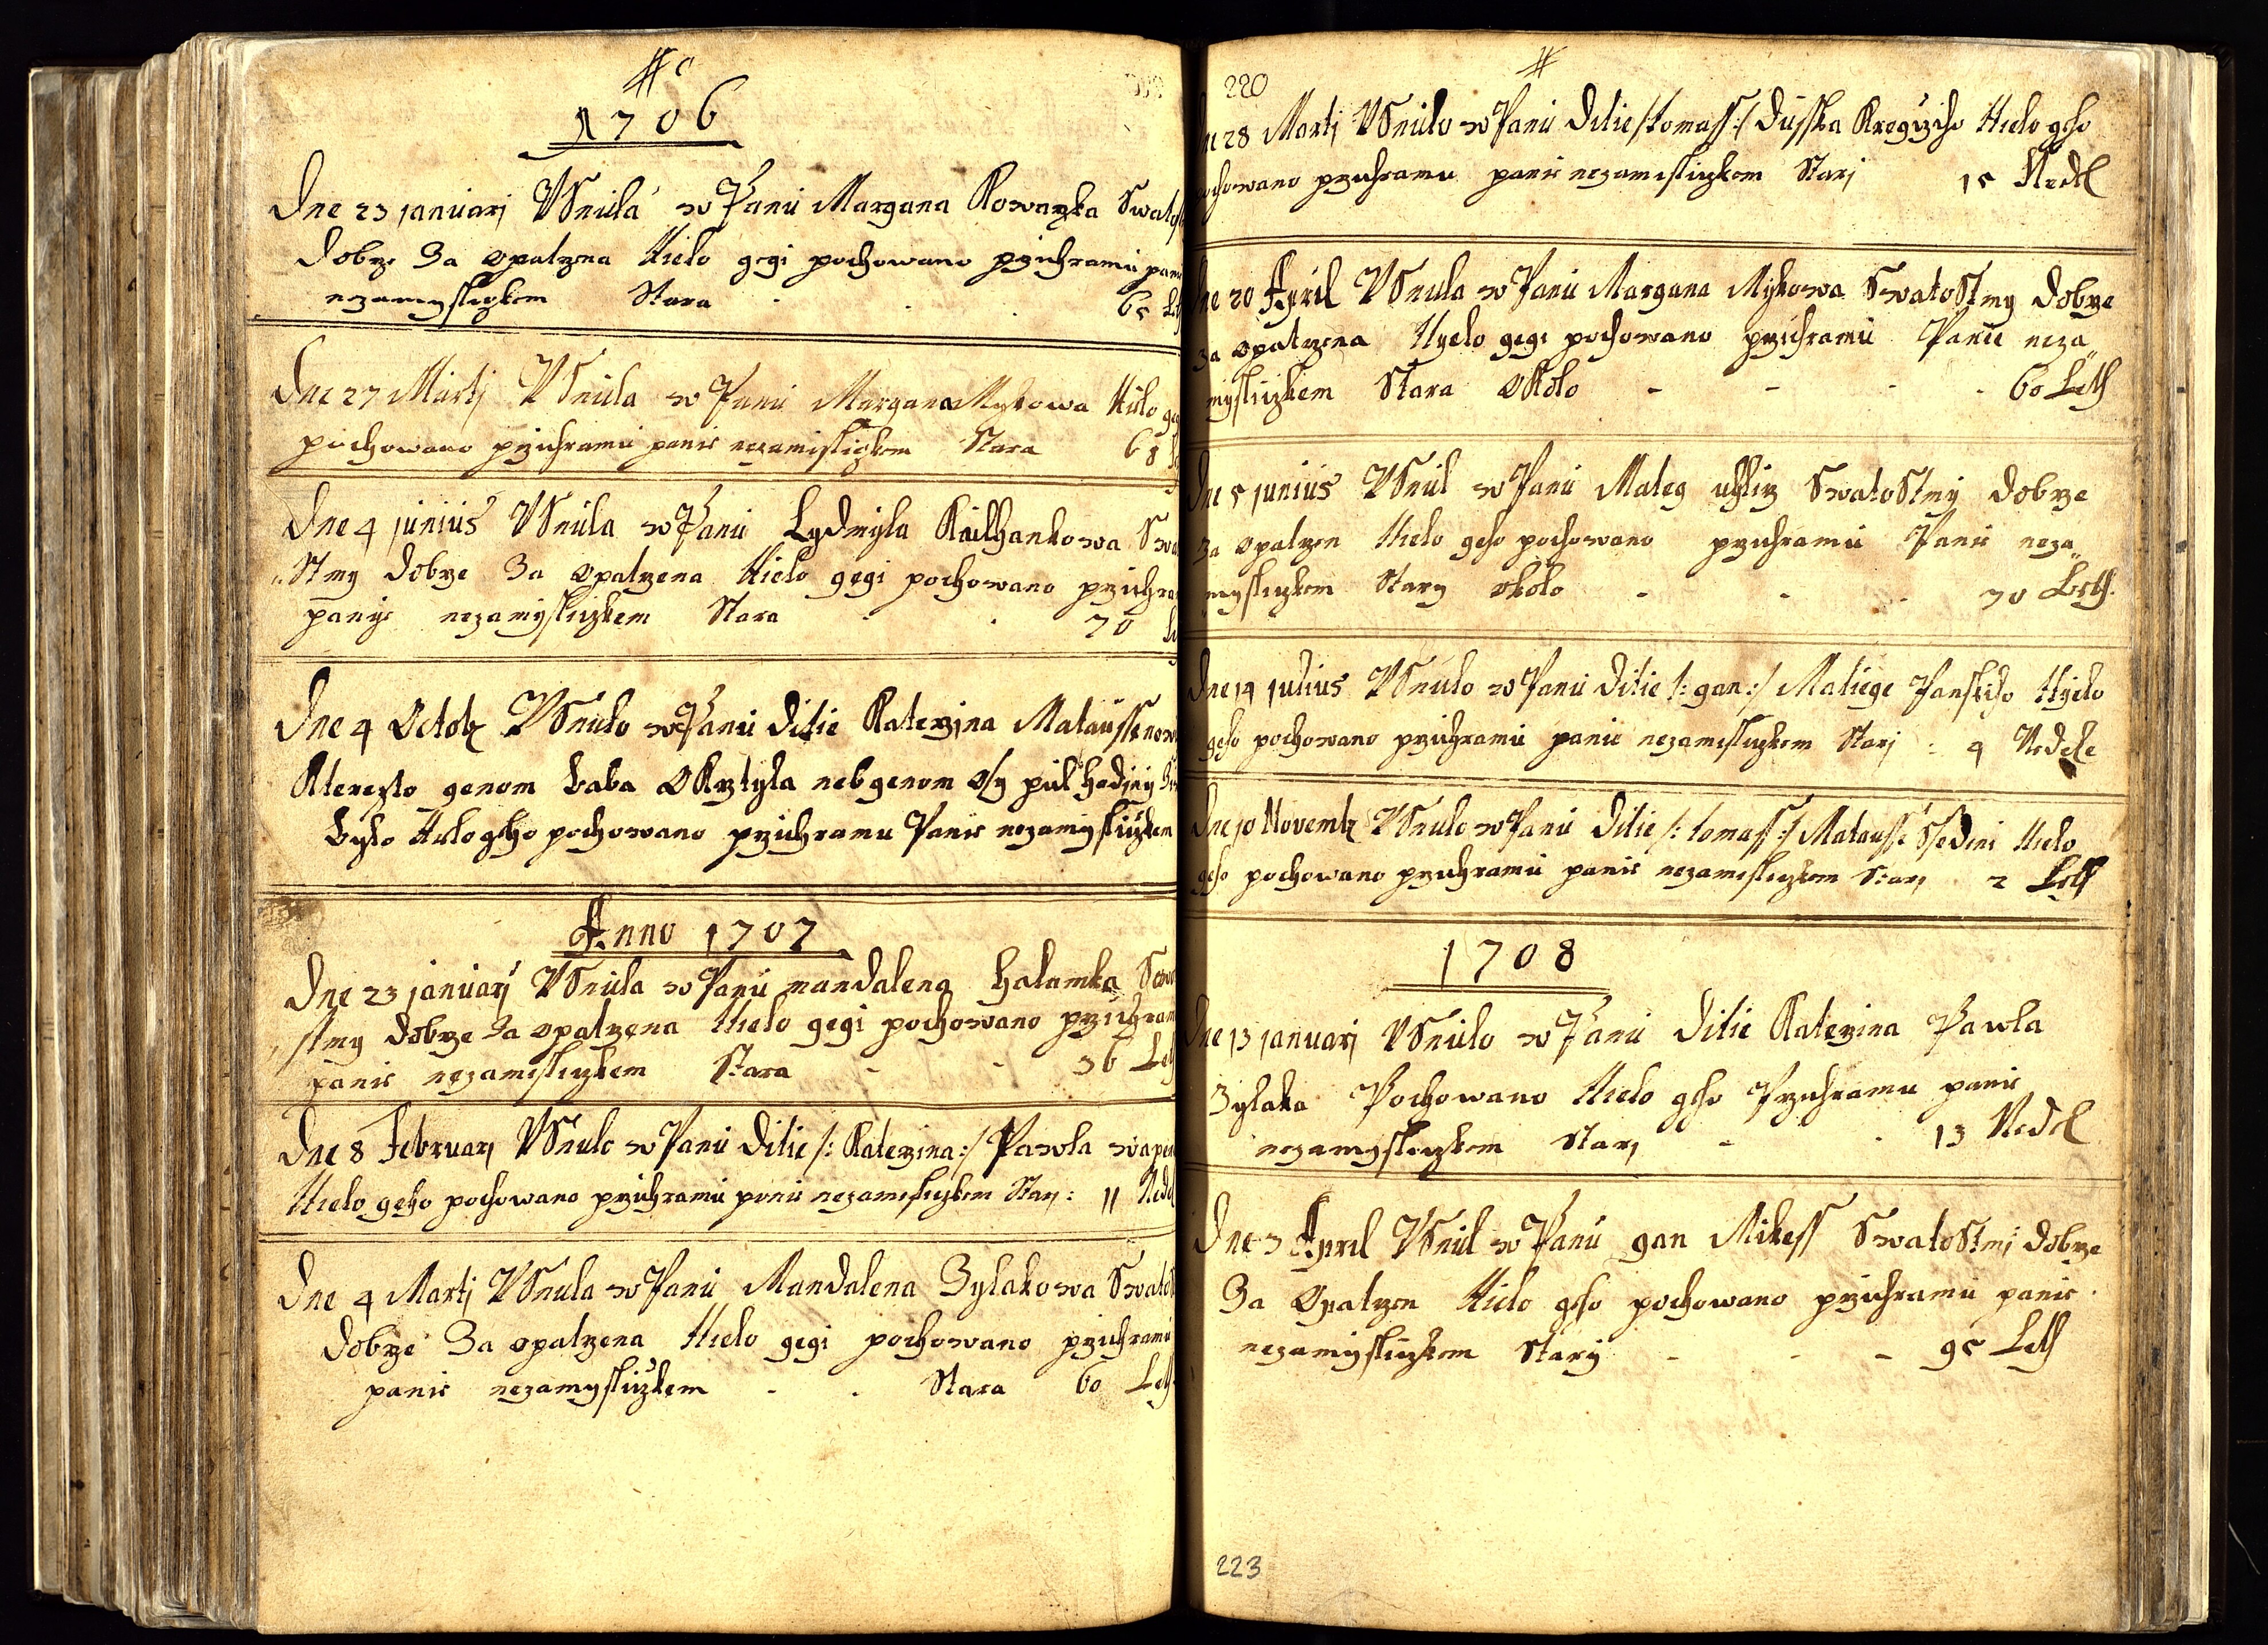 1706
Dne 23 januarj VSnula w Panu Margana Kowarzka Swato
Dobrze Za opatrzena Tielo gegi pochowano przichramu pan
nezamysliczkem Stara 65 Let
Dne 27 Martj VSnula w Panu Margana Mykowa Tielo geg
pochowano przichramu panie nezamisliczkem Stara 68
Dne 4 junius VSnula w Panu Lydmyla Swa
Stmy Dobrze Za opatrzena Tielo gegi pochowano przichra
panie nezamysliczkem Stara 70 Le
Dne 4 Octob VSnulo w Panu Ditie Katerzina
Kterezto genom baba OKrztyla neb genom osy pul hodiny
bylo Tielo geho pochowano przichramu Panie nezamysliczkem
Anno 1707
Dne 23 januarj VSnula w Panu mandalena halamka Swa
stmy Dobrze Za opatrzena Tielo gegi pochowano przichram
panie nezamisliczkem Stara 36 Let
Dne 8 Februarj VSnulo w Panu Ditie /: Katerzina :/ Pawla wapen
Tielo geho pochowano przichramu panie nezamisliczkem Stary : 11 Nedel
Dne 4 Martj VSnula w Panu Mandalena Zylakowa Swato
Dobrze Za opatrzena Tielo gegi pochowano przichramu
panie nezamysliczkem Stara 60 Leth
220
ne 28 Martj VSnulo w Panu Ditie /: tomass :/ Dusska Kregcziho Tielo geho
pochowano przichramu panie nezamisliczkem Starj 15 Nedel
Dne 20 April VSnula w Panu Margana Mykowa SwatoStmy Dobrze
Za opatrzena Tyelo gegi pochowano przichramu Panie neza
mysliczkem Stara OKolo 60 Leth
Dne 5 junius VSnul w Panu Mateg SwatoStmy Dobrze
Za opatrzen Tielo geho pochowano przichramu Panie neza
mysliczkem Stary okolo 70 Leth
Dne 14 julius VSnulo w Panu Ditie /: gan :/ Matiege Panskiho Tyelo
geho pochowano przichramu panie nezamisliczkem Starj : 4 Nedele
Dne 10 Novemb VSnulo w Panu Ditie /: tomass :/ Matausse Tielo
geho pochowano przichramu panie nezamisliczkem Starj 2 Leth
1708
Dne 13 januarj VSnulo w Panu Ditie Katerzina Pawla
Zylaka Pochowano Tielo geho Przichramu panie
nezamysliczkem Starj 13 Nedel
Dne 3 April VSnul w Panu gan Mikess SwatoStmi Dobrze
Za Opatrzen Tielo geho pochowano przichramu panie
nezamysliczkem Stary 95 Leth
223